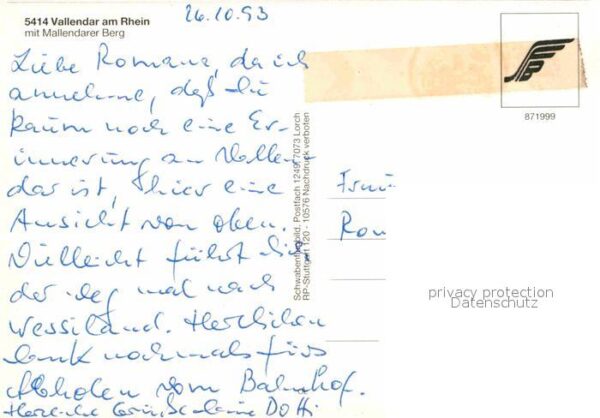 26.10.93
5414 Vallendar am Rhein
mit Mallendarer Berg
Liebe Romana, da ich
annehme, daß Du
kaum noch eine Er-
innerung an Vallen-
dar ist, hier eine
Ansicht von oben.
Vielleicht führt Dich
der Weg mal nach
Wessiland. Herzlichen
Dank nochmals fürs
Abholen vom Bahnhof.
Herzliche Grüße Dotti
871999
Schwabenflugbild, Postfach 1249, 7073 Lorch
RP-Stuttgart 120 - 10576 Nachdruck verboten
Frau
Rom
privacy protection
Datenschutz